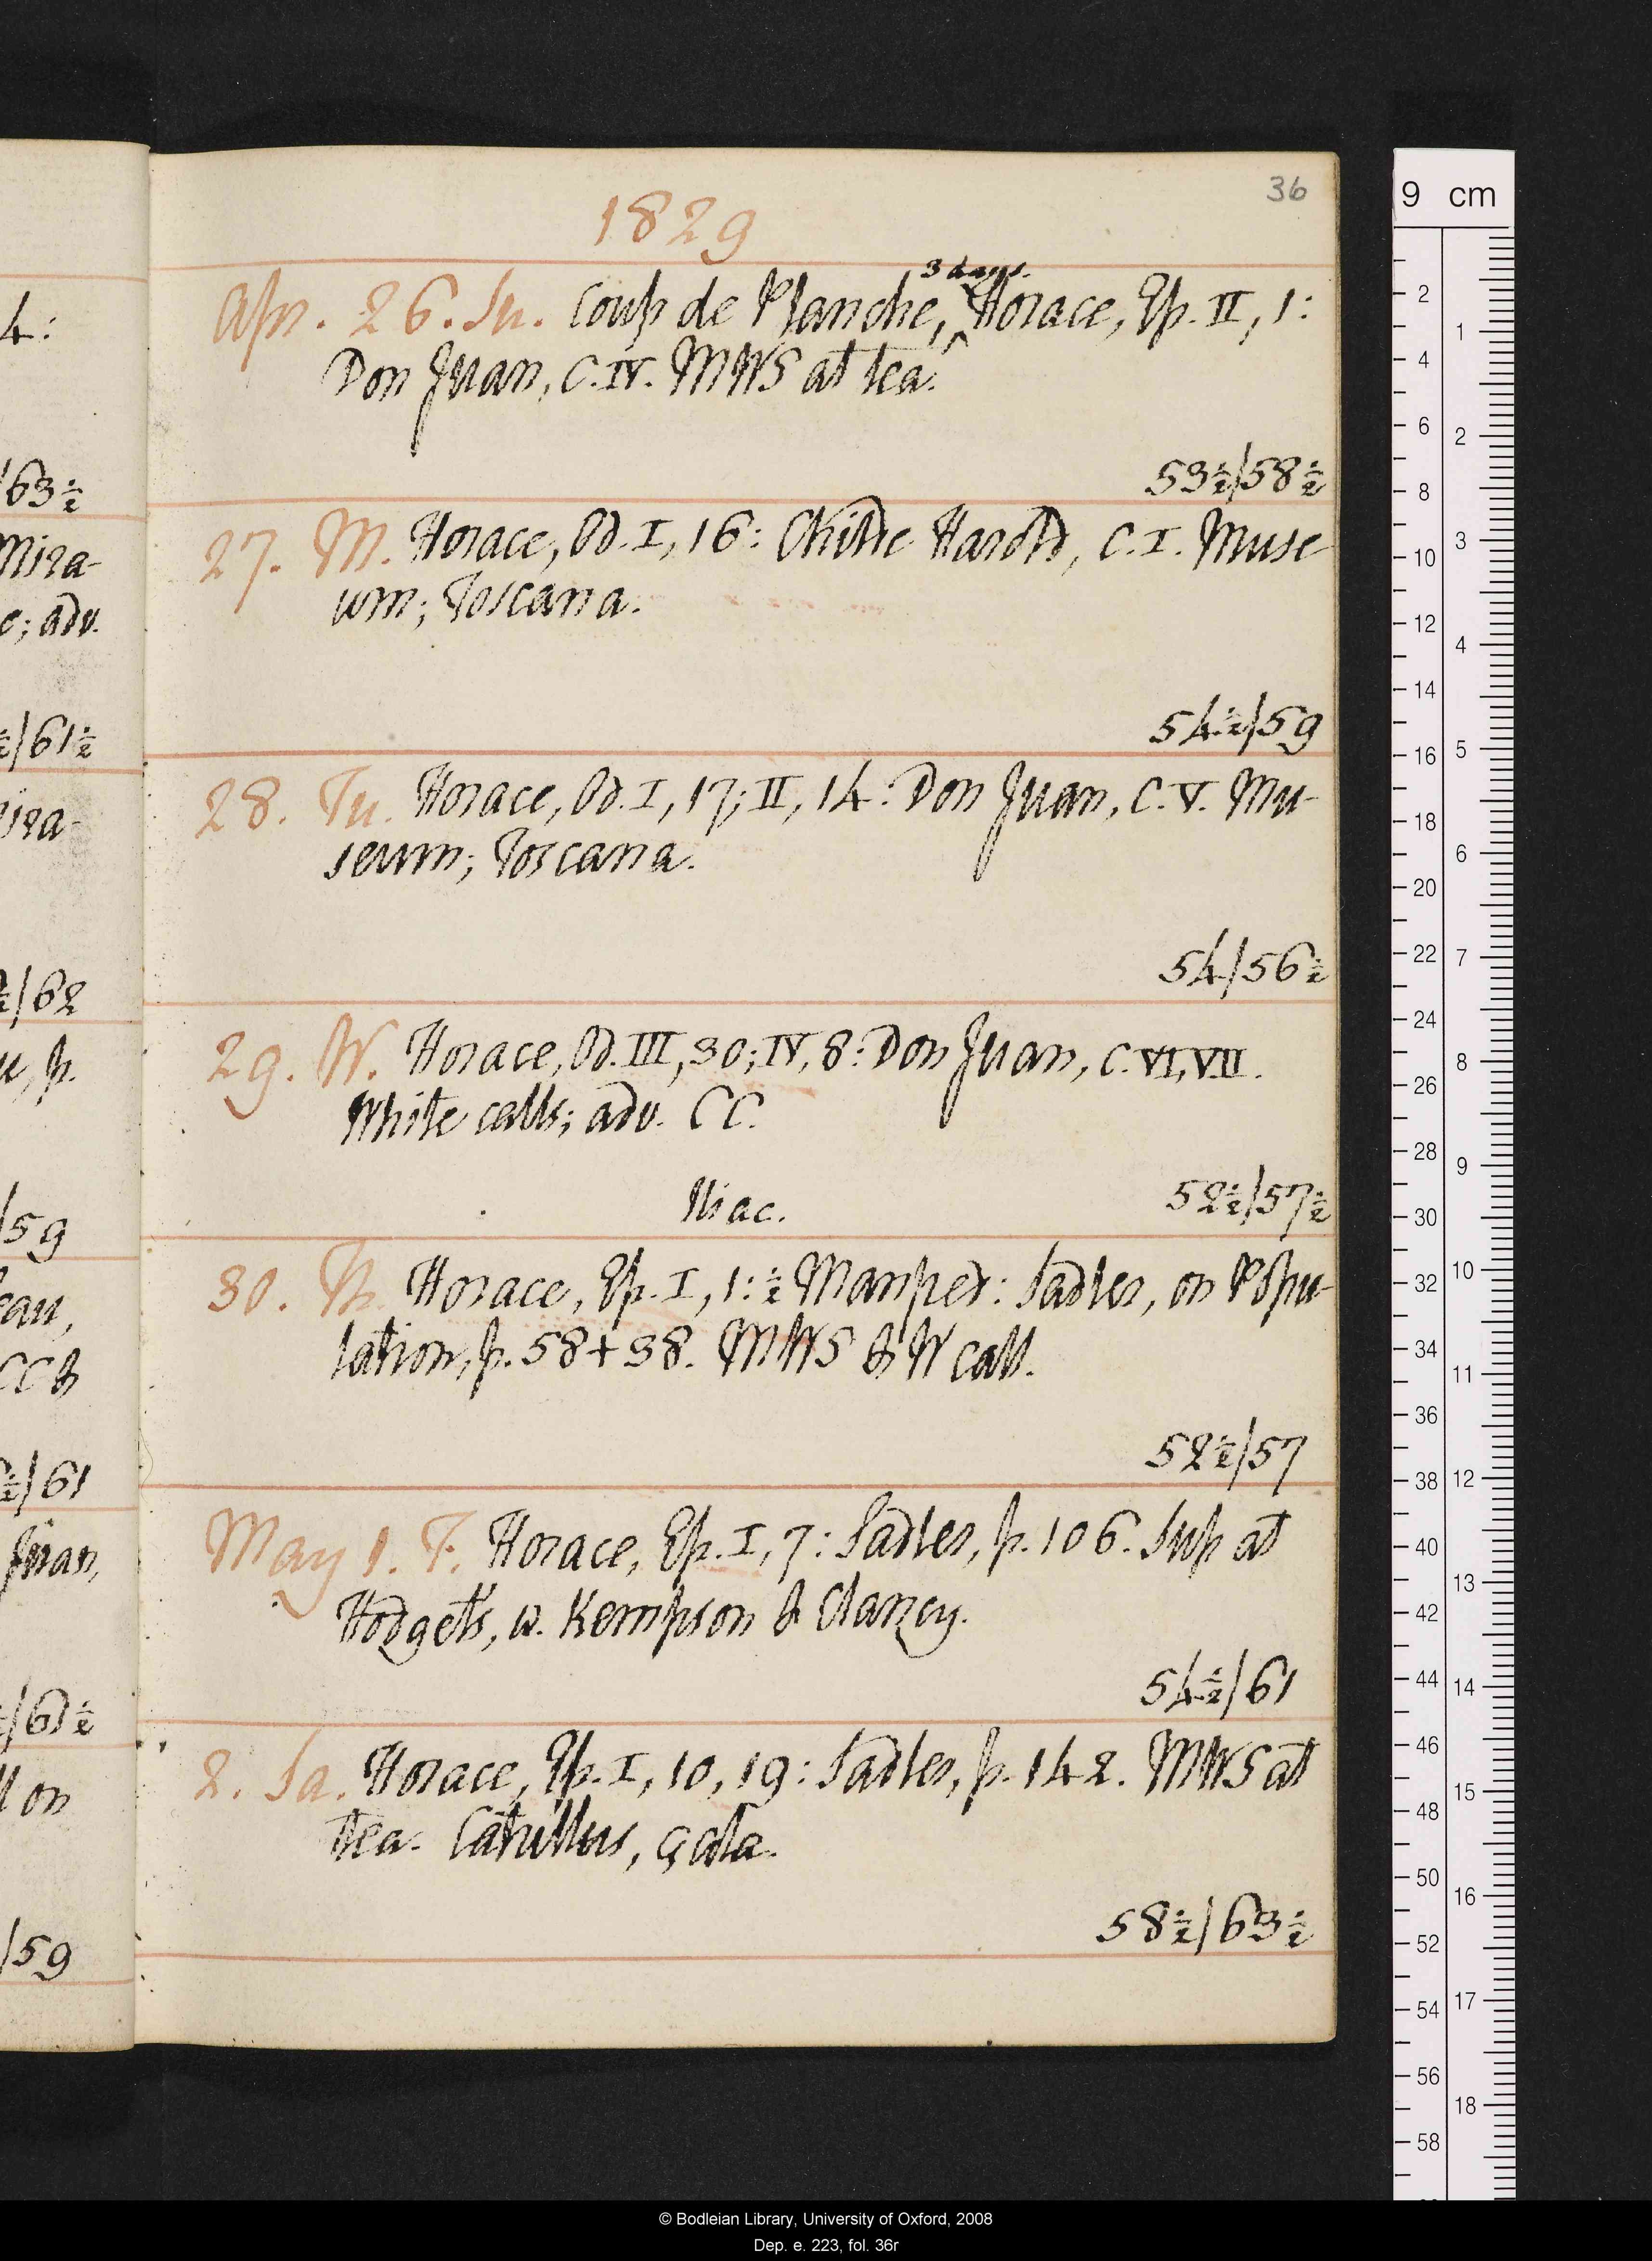 36
1829
3 days.
Apr. 26. Su. Coup de Planche, ^ Horace, Ep. II, 1:
Don Juan, C. IV. MWS at tea.
53½/58½
27. M. Horace, Od. I, 16: Childe Harold, C. I. Muse-
um; Toscana.
54½/59
28. Tu. Horace, Od. I, 17; II, 14: Don Juan, C. V. Mu-
seum; Toscana.
54/56½
29. W. Horace, Od. III, 30; IV, 8: Don Juan, C. VI, VII.
White calls; adv. CC.
Iliac.
52½/57½
30. Th. Horace, Ep. I, 1: ½ Manfred: Sadler, on Popu-
lation, p. 58+38. MWS & W call.
52½/57
May 1. F. Horace, Ep. I, 7: Sadler, p. 106. Sup at
Hodgets, w. Kempson & Clancy.
54½/61
2. Sa. Horace, Ep. I, 10, 19: Sadler, p. 142. MWS at
tea. Catullus, çala.
58½/63½
4:
/63½
Mira-
c; adv.
½/61½
ira-
½/62
u, p.
/59
eau,
CC &
½/61
Juan,
/61½
on
/59
9 cm
2
4
6
8
10
12
14
16
18
20
22
24
26
28
30
32
34
36
38
40
42
44
46
48
50
52
54
56
58
1
2
3
4
5
6
7
8
9
10
11
12
13
14
15
16
17
18
© Bodleian Library, University of Oxford, 2008
Dep. e. 223, fol. 36r